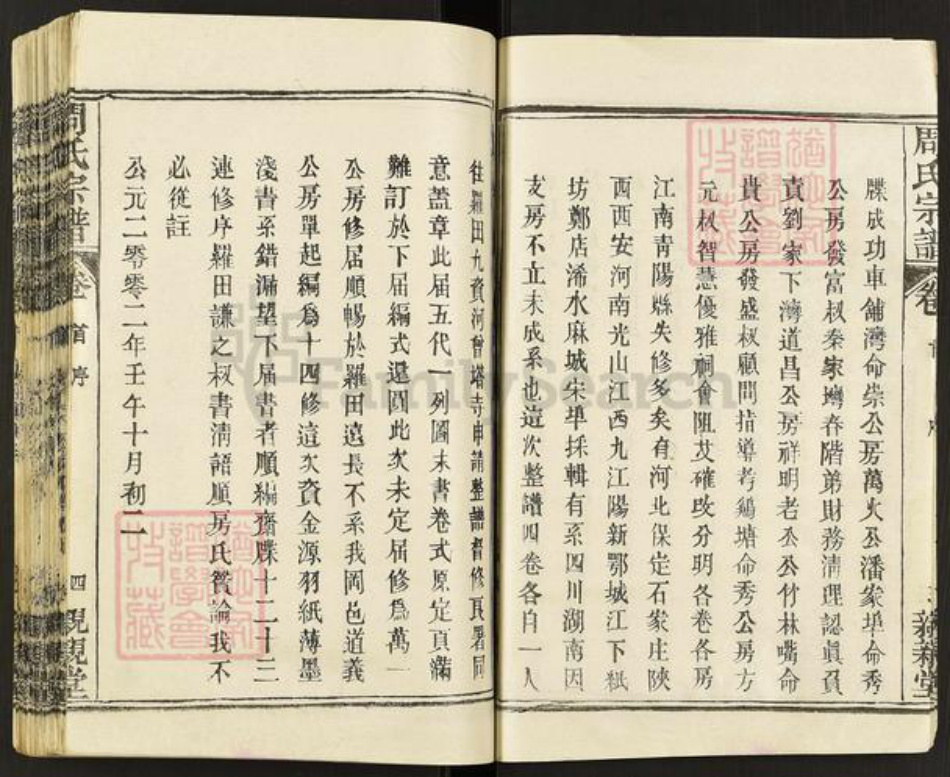 周氏宗譜
卷
首
序
親親堂
牒成功車舖灣命崇公房萬火公潘家埠命秀
公房發富叔秦家灣春階弟財務清理認眞負
責劉家下灣道昌公房祥明老公公竹林嘴命
貴公房發盛叔顧問指導考鷄塘命秀公房方
元叔智慧優雅祠會阻艾確改分明各卷各房
江南青陽縣失修多矣有河北保定石家庄陝
西西安河南光山江西九江陽新鄂城江下紙
坊鄭店浠水麻城宋埠採輯有系四川湖南因
支房不立未成系也這次整譜四卷各自一人
往羅田九資河曾塔寺申請整譜督修良署同
意蓋章此届五代一列圖末書卷式原定頁滿
難訂於下届編式還圓此次未定届修爲萬一
公房修届順暢於羅田遠長不系我岡邑道義
公房單起編爲十四修這次資金源羽紙薄墨
淺書系錯漏望下届書者順編齋牒十二十三
連修序羅田謙之叔書清語順房氏贊論我不
必從註
公元二零零二年壬午十月初二
周氏宗譜
卷
首
序
四
親親堂
猶他家譜學會收藏
猶他家譜學會收藏
FamilySearch